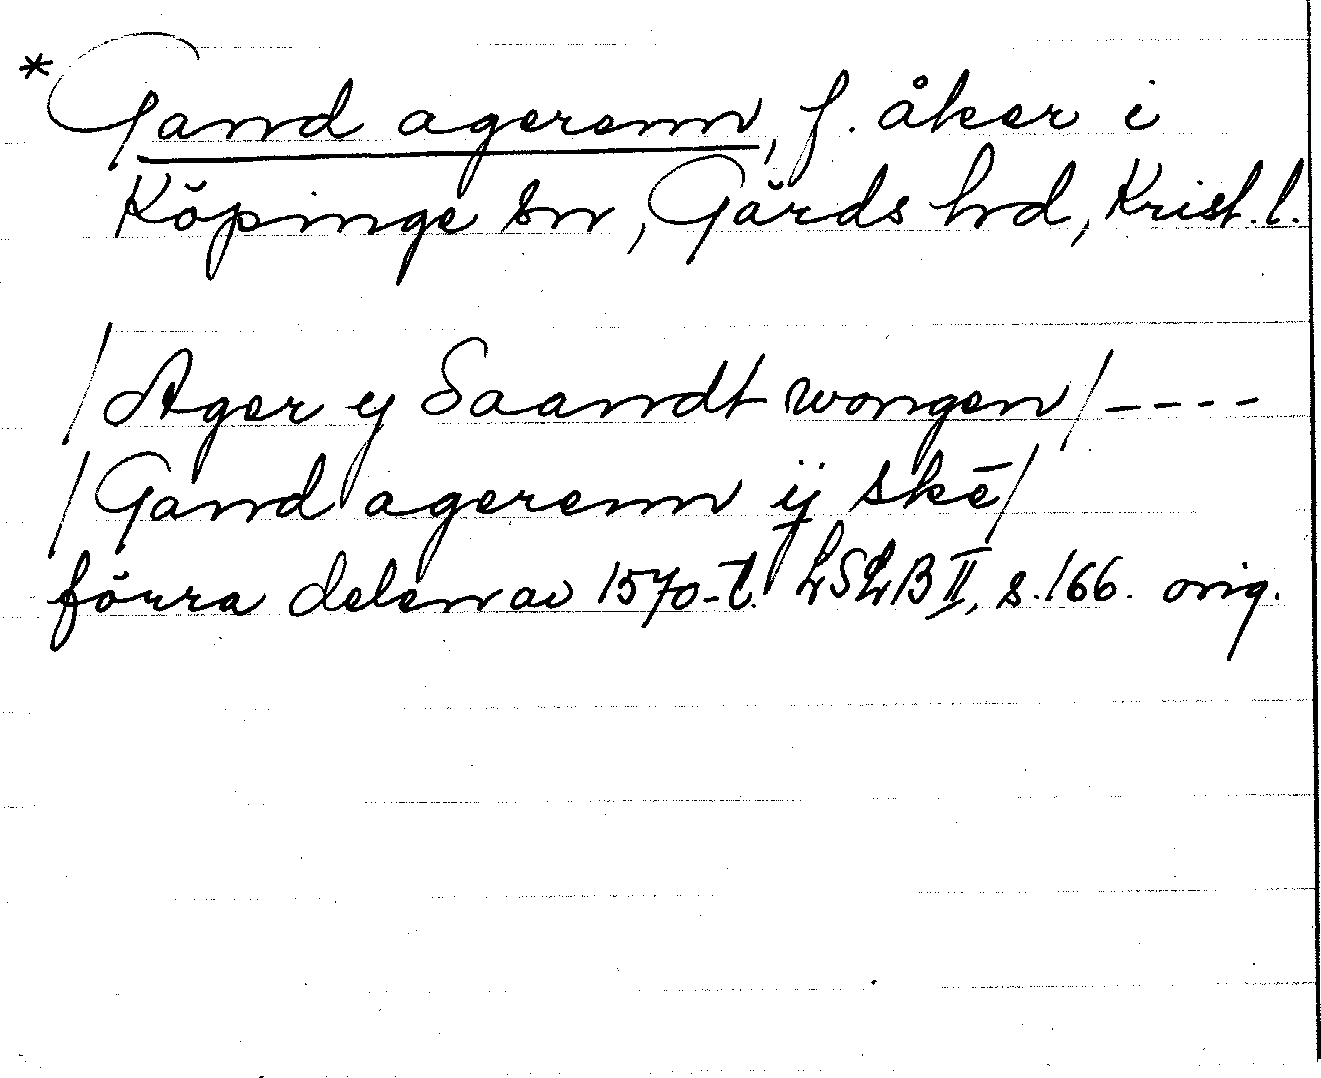 * Gand agerenn, f. åker i
Köpinge sn, Gärds hd, Krist. l.
/Ager y Saandt wongen/ ----
/Gand agerenn ij skē/
förra delen av 1570-t. LSLB II, s. 166. orig.